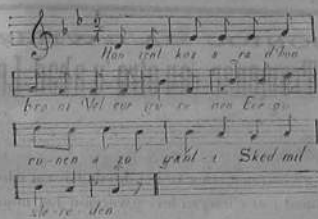 Hon sent koz a ra d'hon
bro ni Vel eur gu ru nen Eur gu
ru-nen a zo gant-i Sked mil
ste-re-den